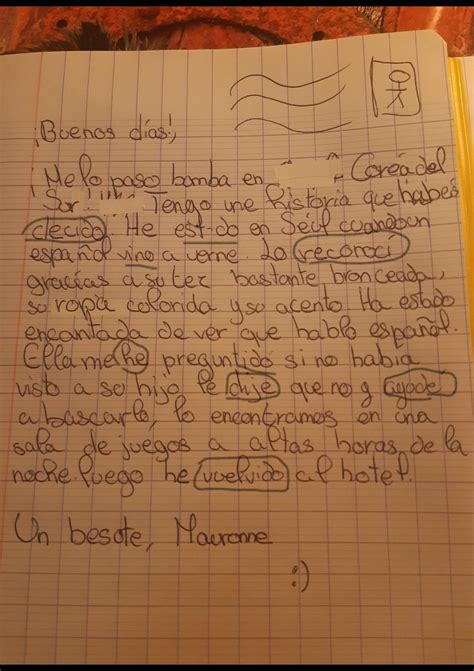 ¡Buenos días!,
¡Me lo paso bomba en Corea del
Sur. Tengo une historia que habeis
clecido. He est-do en Séul cuandoun
español vino a verne. Lo reconoci
gracias a su tez bastante bronceada,
so ropa colorida y so acento. Ha estado
encantada de ver que hablo español.
Ella me he preguntido si no habia
visto a so hijo. le dije que no y ayode
a bascarlo, lo encontramos en una
sala de juegos a altas horas de la
noche. luego he vuelvido al hotel.
Un besote,
:)